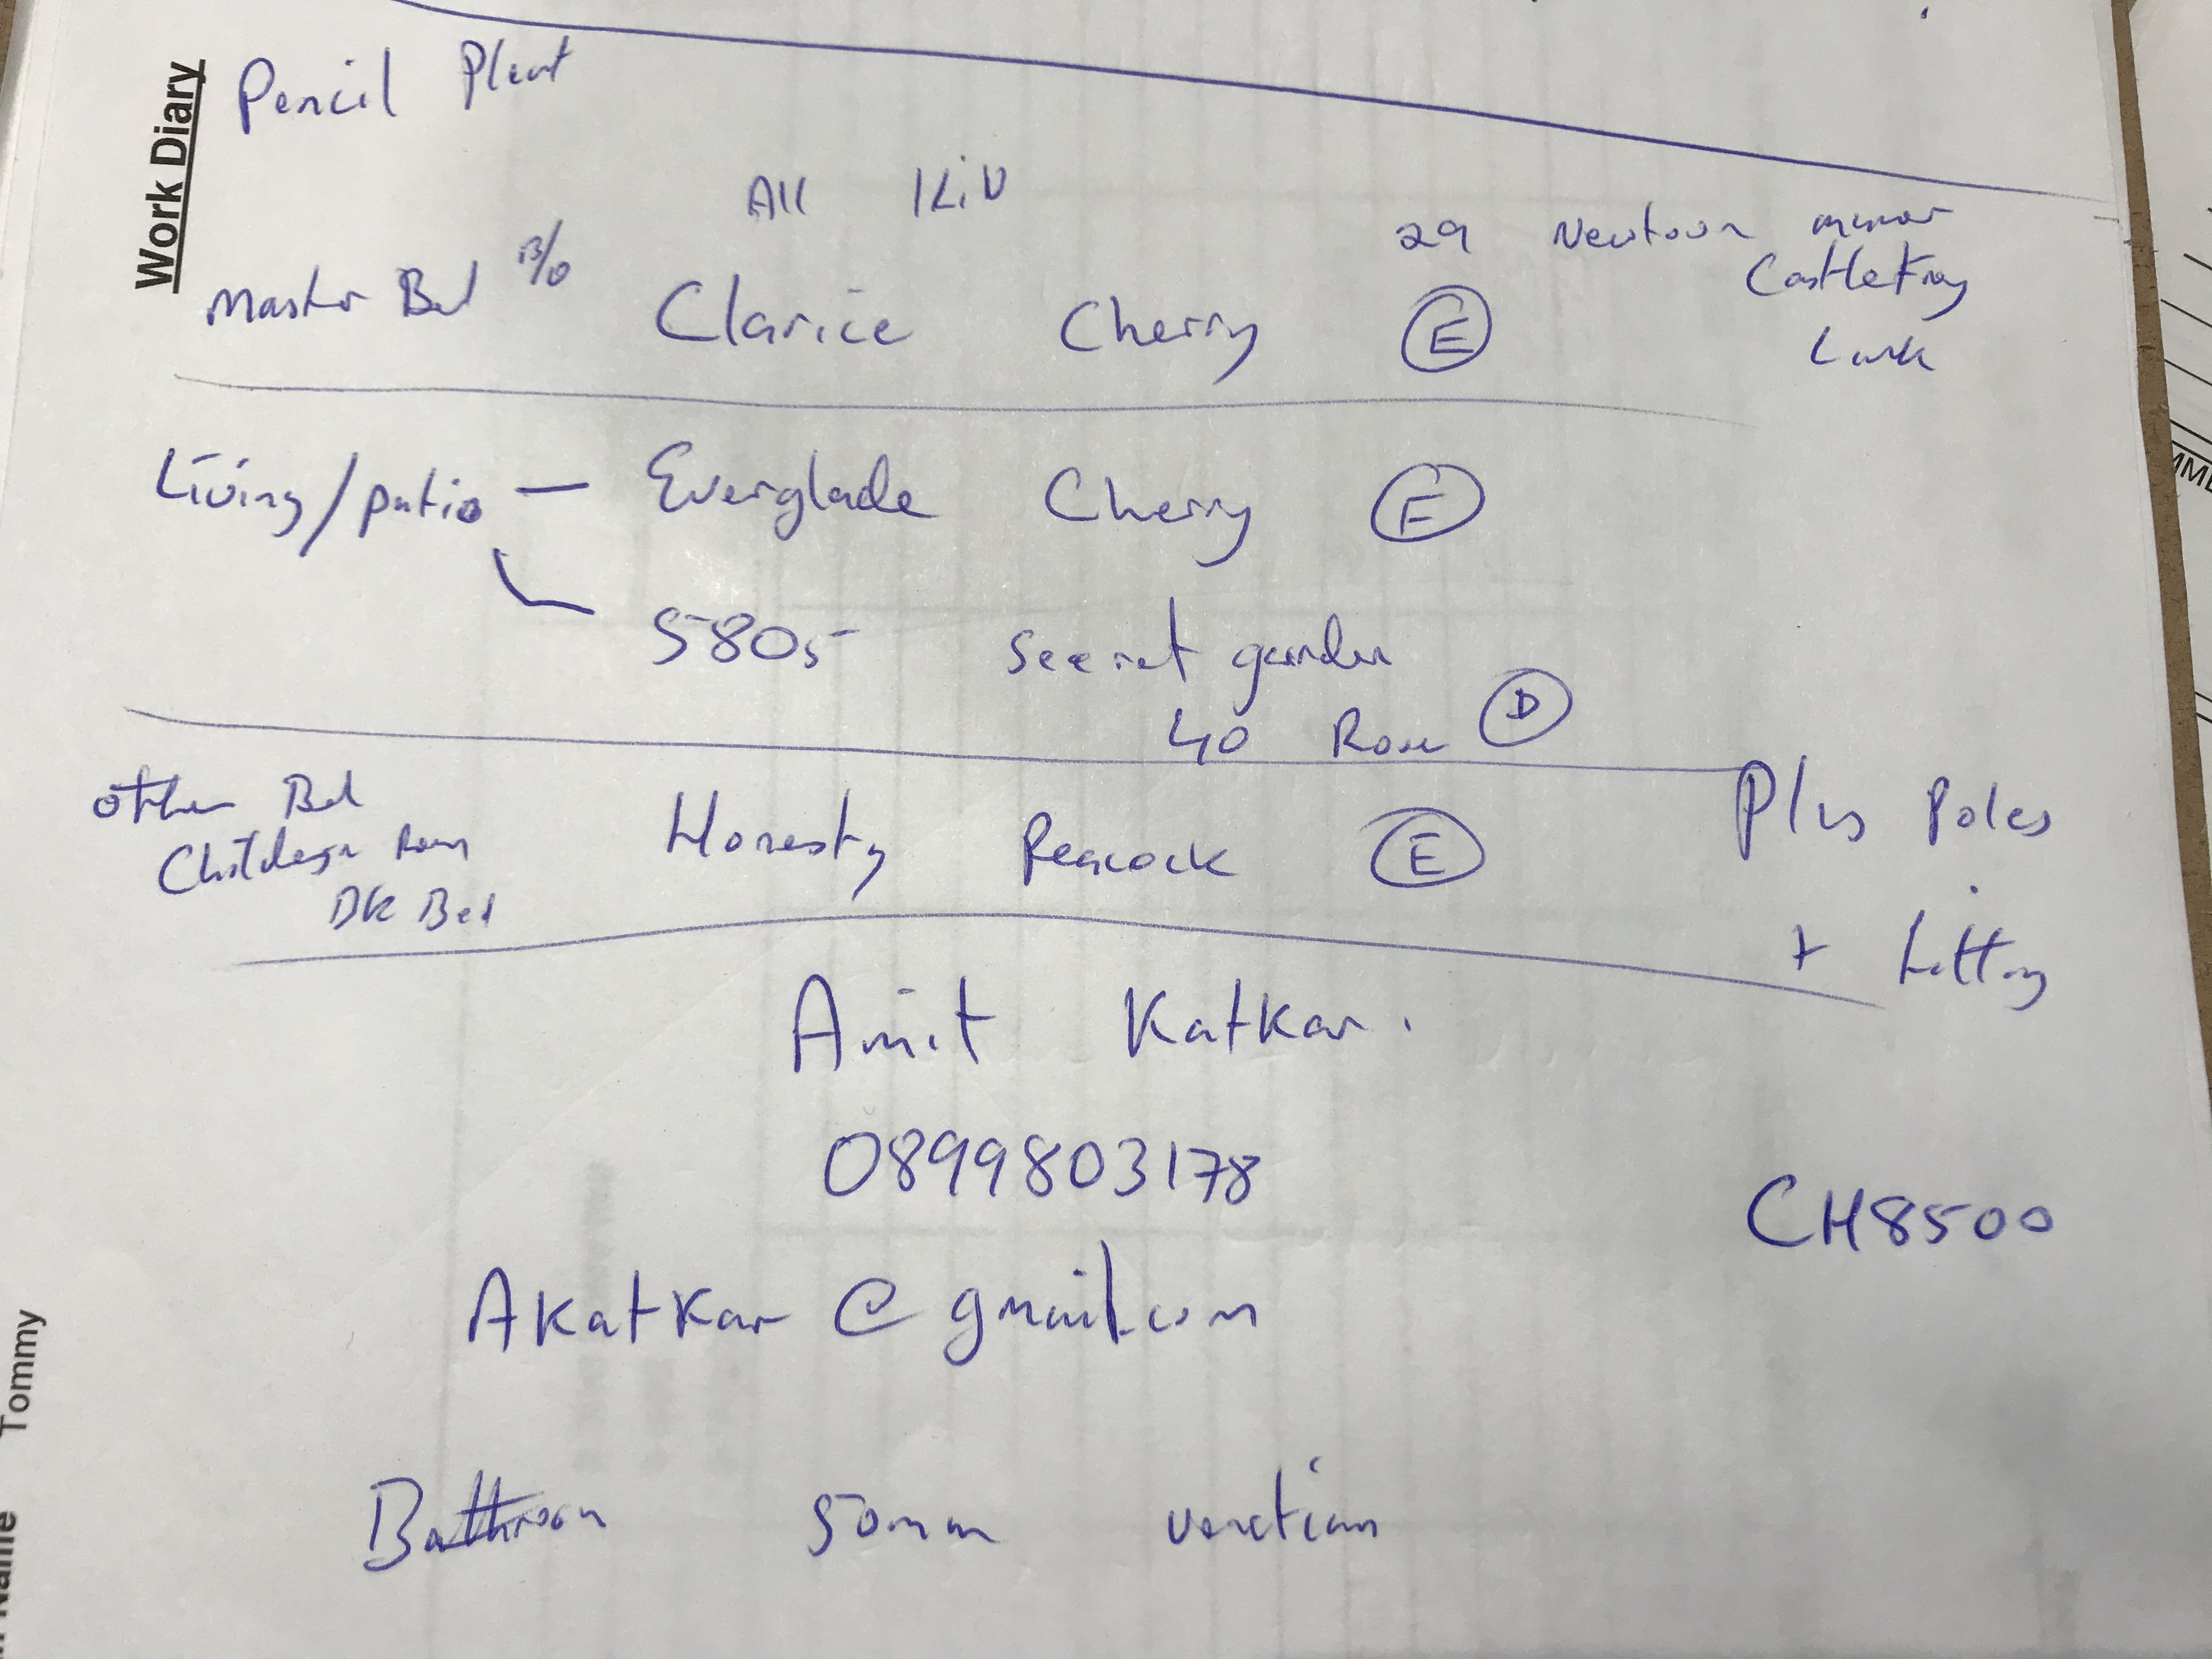 Work Diary
Pencil Pleat
All
29 Newtown manor
Castletroy
Master Bed B/O Clarice Cherry E
Living/patio — Everglade Cherry E
5805 Secret garden
40 Rose D
Other Bed
Childrens Room Honesty Peacock E
Bed
Plus Poles
+ fitting
Amit Katkar.
0899803178
CH8500
Akatkar@gmail.com
Bathroom 50mm venetian
Tommy
Name